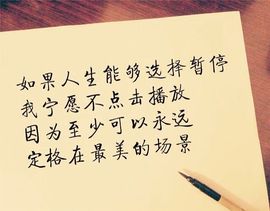 如果人生能够选择暂停
我宁愿不点击播放
因为至少可以永远
定格在最美的场景